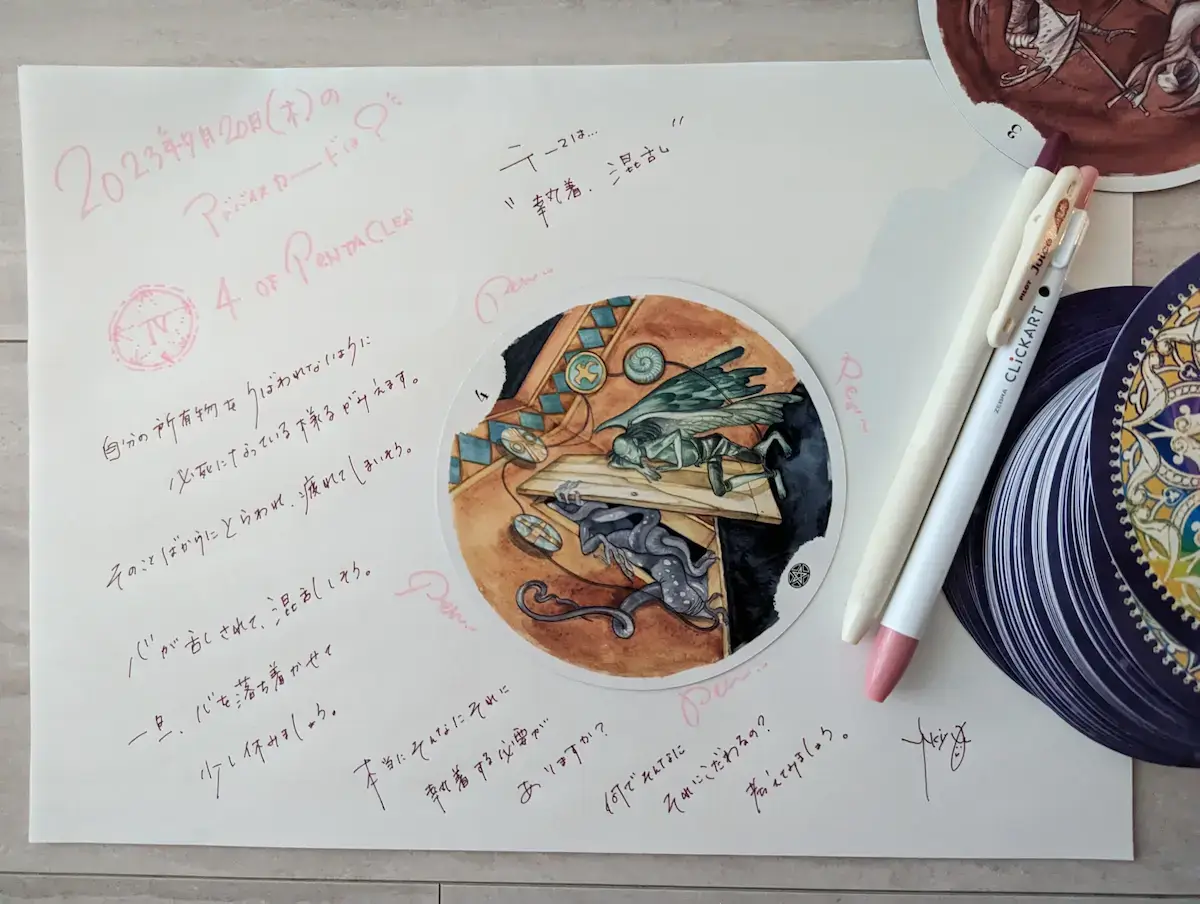 2023年7月20日(木)の
アドバイスカードは?
IV 4 OF PENTACLES
テーマは...
"執着、混乱"
自分の所有物をうばわれないように
必死になっている様子がみえます。
そのことばかりにとらわれ、疲れてしまいそう。
心が乱されて、混乱しそう。
一旦、心を落ち着かせて
少し休みましょう。
本当にそんなにそれに
執着する必要が
ありますか?
何でそんなに
それにこだわるの?
考えてみましょう。
4
3
PILOT Juice
ZEBRA CLiCKART